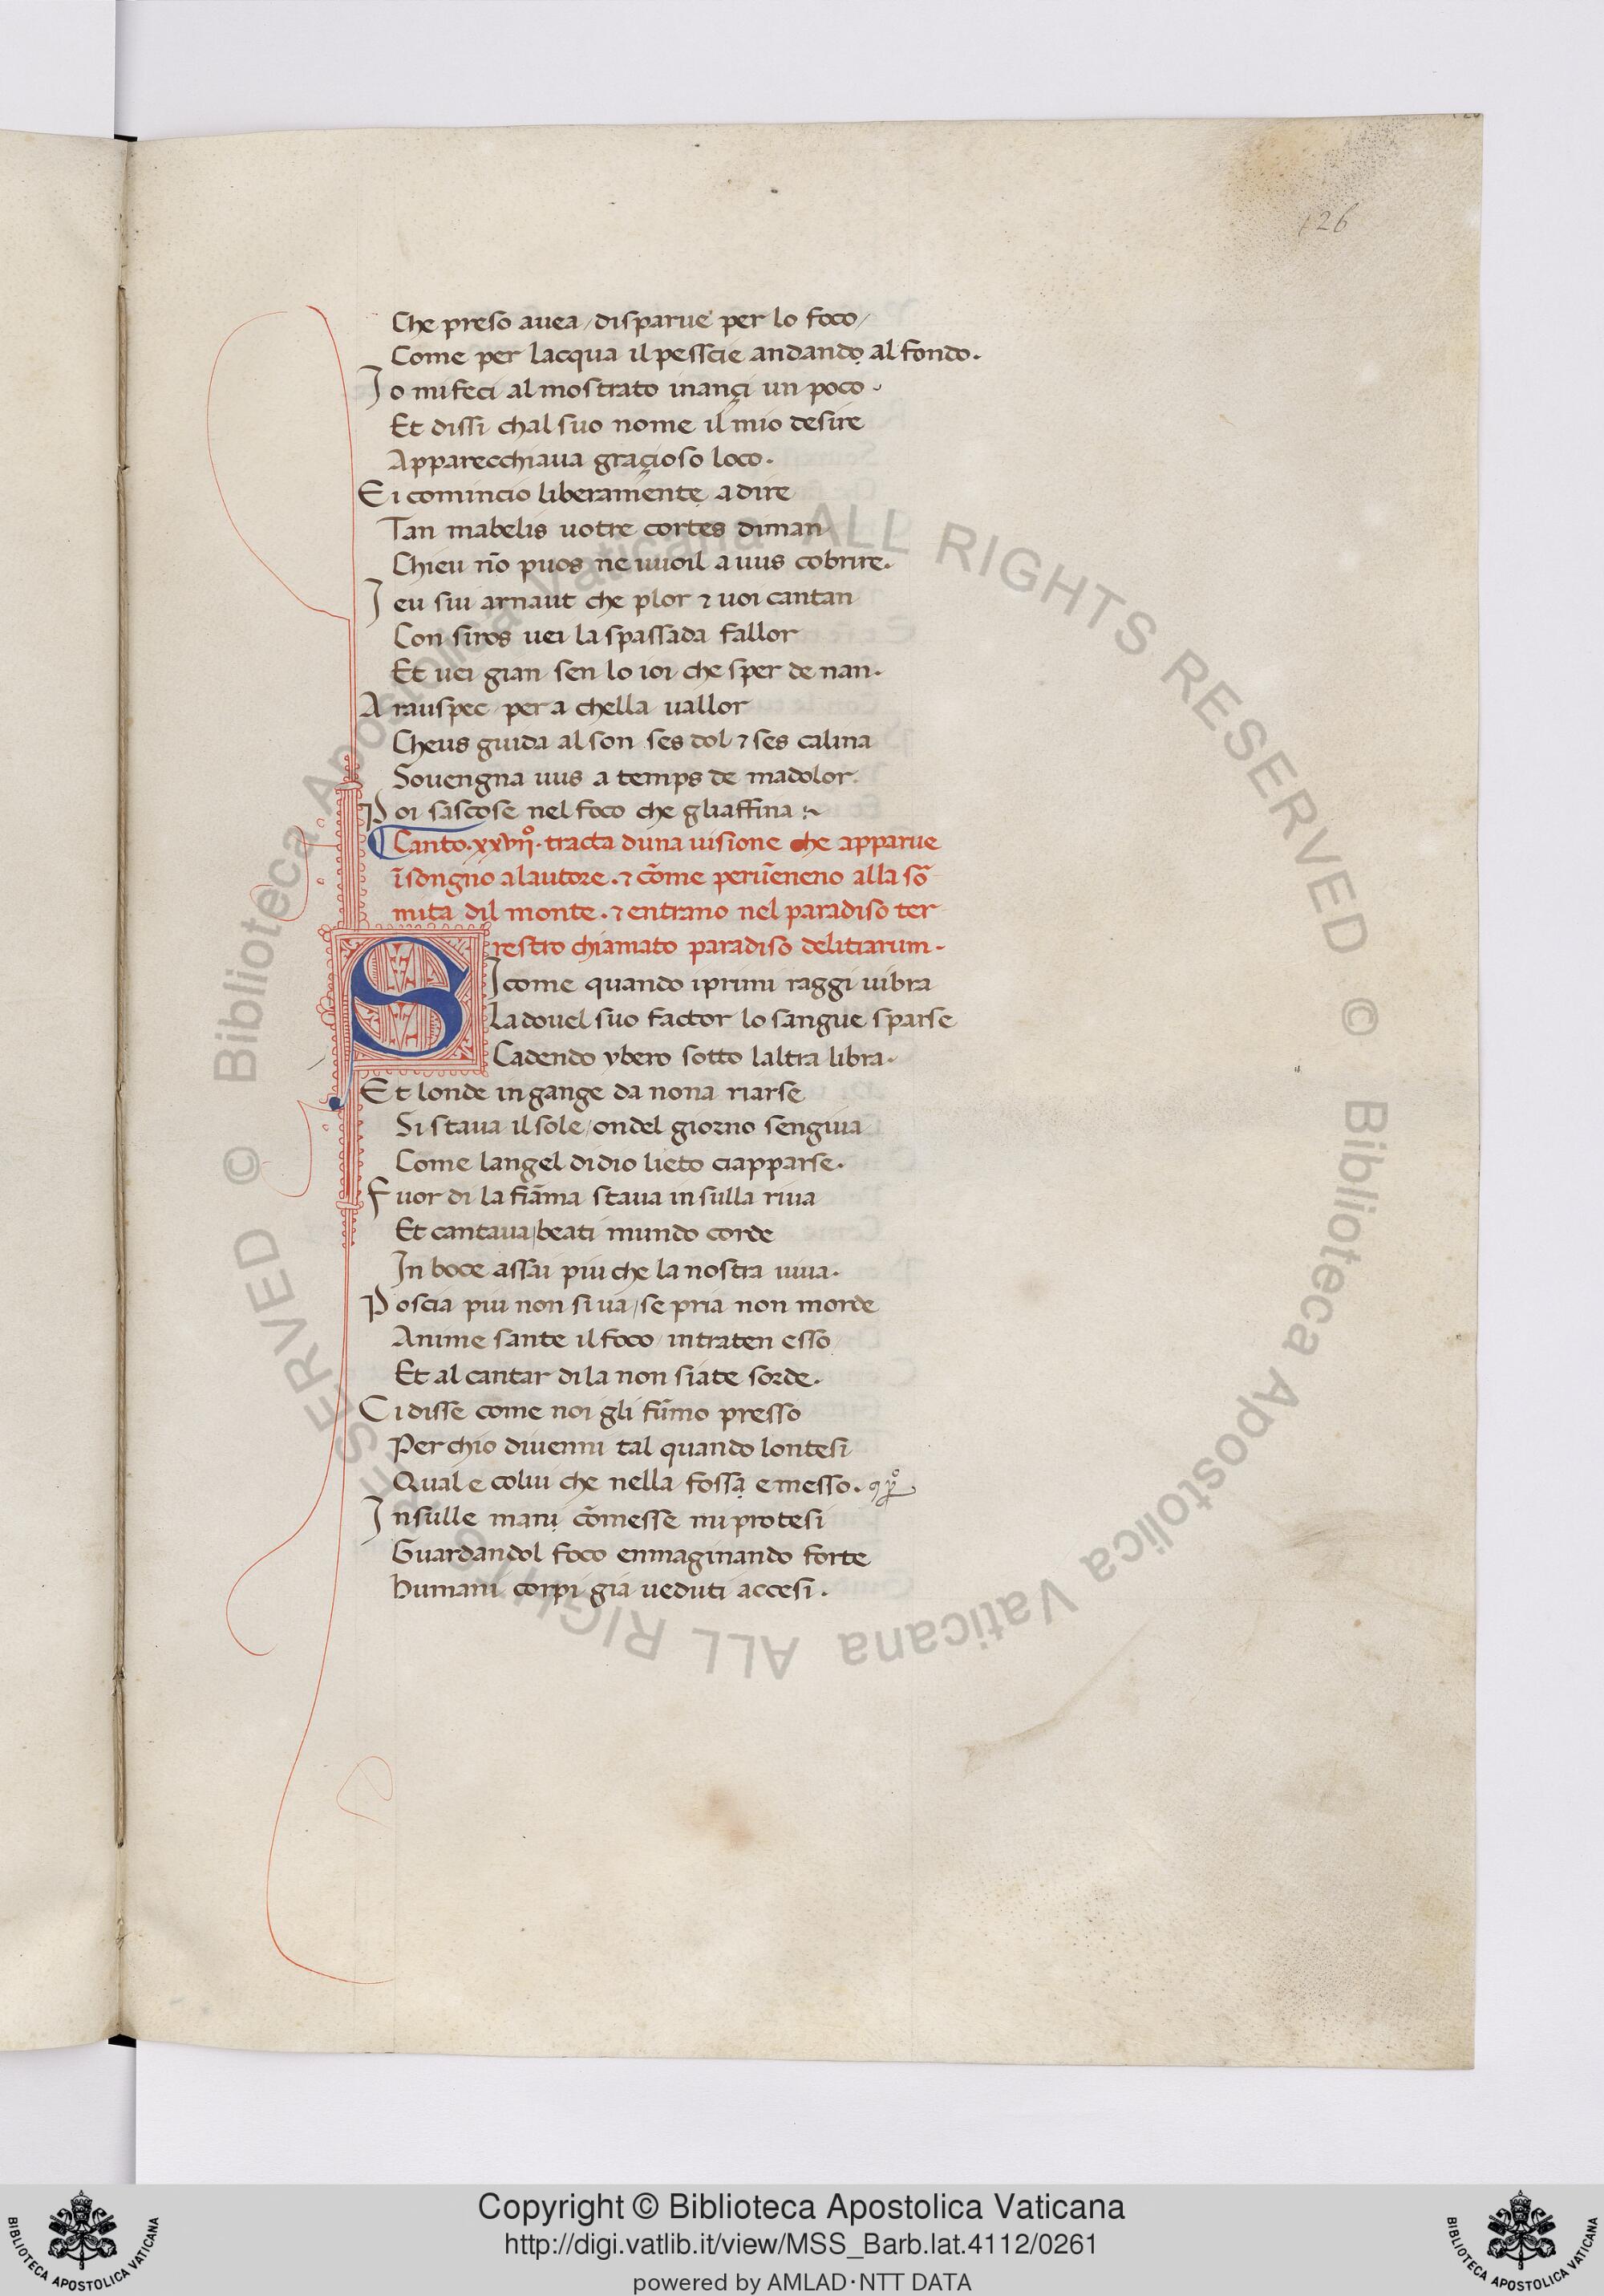 126
Che preso auea / disparue per lo foco /
Come per lacqua il pesscie andando al fondo.
Io mi feci al mostrato inançi un poco.
Et dissi chal suo nome il mio desire
Apparecchiaua graçioso loco.
Ei comincio liberamente a dire
Tan mabelis uotre cortes diman
Chieu nō puos ne uuoil a uus cobrire.
Ieu sui arnaut che plor ⁊ uoi cantan
Con siros uei la spassada fallor
Et uei gian sen lo ioi che sper de nan.
Arauspec per a chella uallor
Cheus guida al son ses dol ⁊ ses calina
Souengna uus a temps de madolor.
Poi sascose nel foco che gliaffina
Canto.xxvijº. tracta duna uisione che apparue
ī songno alautore. ⁊ cōme peruēneno alla sō
mita dil monte. ⁊ entrano nel paradiso ter
restro chiamato paradiso delitiarum.
SIcome quando i primi raggi uibra
La douel suo factor lo sangue sparse
Cadendo ybero sotto laltra libra.
Et londe in gange da nona riarse
Si staua il sole / ondel giorno sengiua
Come langel di dio lieto ciapparse.
Fuor di la fiāma staua in sulla riua
Et cantaua / beati mundo corde
In boce assai piu che la nostra uiua.
Poscia piu non si ua / se pria non morde
Anime sante il foco / intraten esso
Et al cantar di la non siate sorde.
Ci disse cōme noi gli fūmo presso
Per chio diuenni tal quando lontesi
Qual e colui che nella fossa e messo.
Insulle mani cōmesse mi protesi
Guardandol foco enmaginando forte
Humani corpi gia ueduti accesi.
© Biblioteca Apostolica Vaticana ALL RIGHTS RESERVED © Biblioteca Apostolica Vaticana ALL RIGHTS RESERVED
Copyright © Biblioteca Apostolica Vaticana
http://digi.vatlib.it/view/MSS_Barb.lat.4112/0261
powered by AMLAD·NTT DATA
BIBLIOTECA APOSTOLICA VATICANA
BIBLIOTECA APOSTOLICA VATICANA